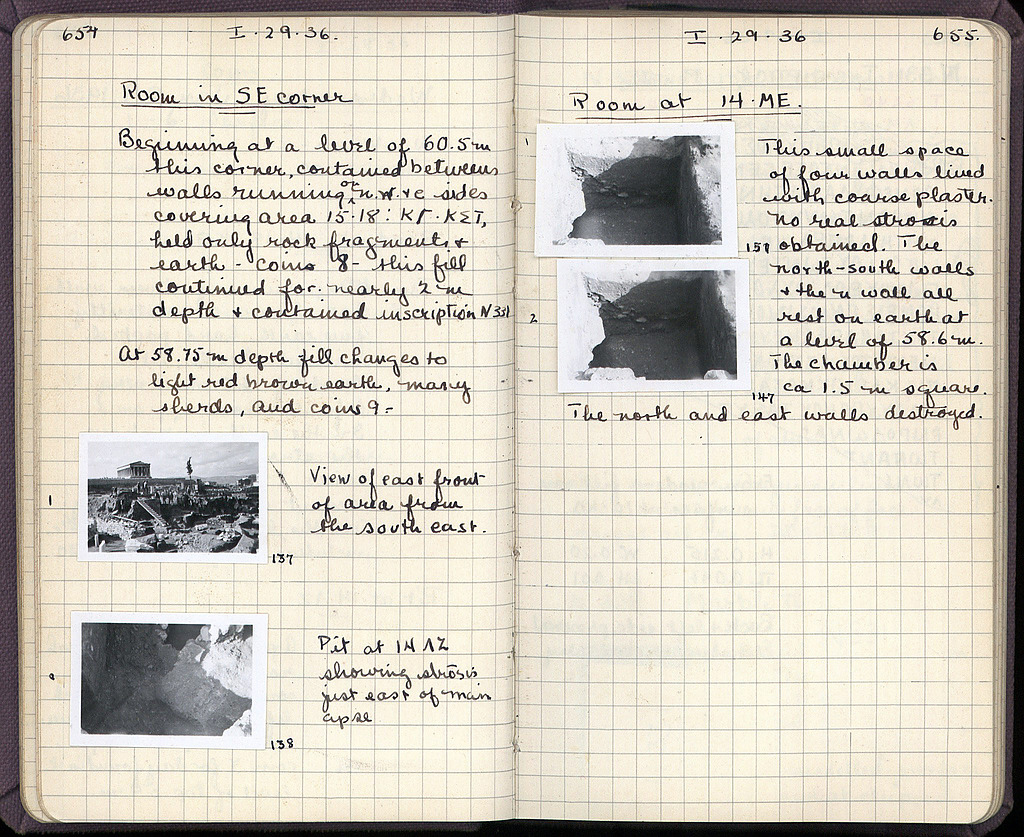 654
I · 29 · 36.
Room in SE corner
Beginning at a level of 60.5 m
this corner, contained between
walls running on n.w. + e sides
covering area 15-18 : ΚΓ · ΚΣΤ,
held only rock fragments +
earth - coins 8 - this fill
continued for nearly 2 m
depth + contained inscription N 331
At 58.75 m depth fill changes to
light red brown earth, many
sherds, and coins 9 -
1
View of east front
of area from
the south east.
137
Pit at 14 ΛΖ
showing strosis
just east of main
apse
138
I · 29 · 36
655.
Room at 14 · ΜΕ.
1
This small space
of four walls lined
with coarse plaster.
No real strosis
151
obtained. The
north-south walls
+ the n wall all
2
rest on earth at
a level of 58.6 m.
The chamber is
ca 1.5 m square.
147
The north and east walls destroyed.